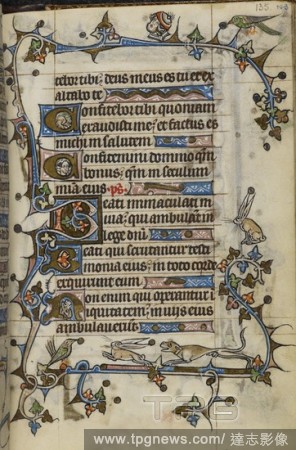 135
celor tibi: deus meus es tu et ex
altabo te
Confitebor tibi quoniam
exaudisti me: et factus es
michi in salutem
Confitemini domino qm̄
bonus: qm̄ in seculum
mīa eius ps̄.
Beati immaculati in
uia: qui ambulāt in
lege dn̄i
Beati qui scrutantur testi
monia eius: in toto corde
exquirunt eum
Non enim qui operantur i
iquitatem: in uijs eius
ambulauerūt
TPG
www.tpgnews.com/ 達志影像